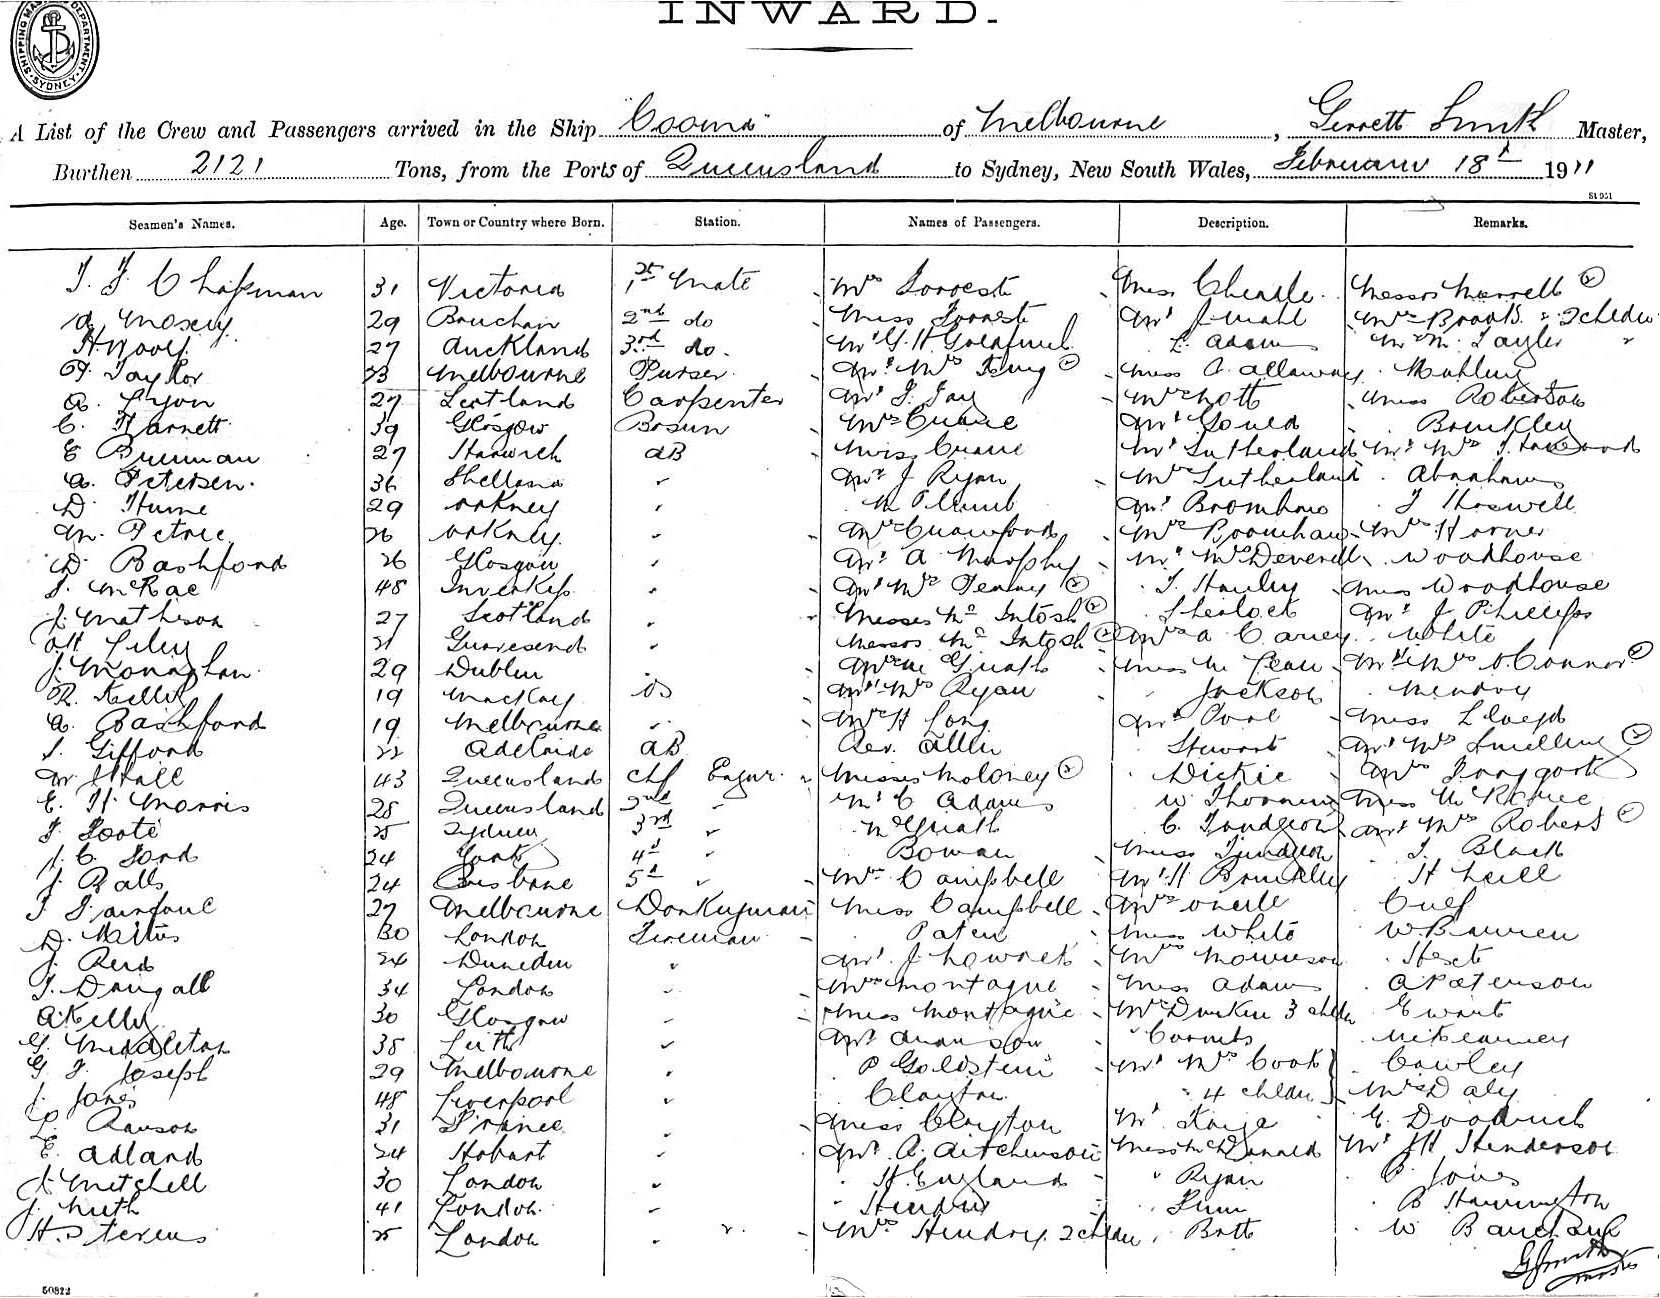 INWARD.
SHIPPING MASTER'S DEPARTMENT. SYDNEY
A List of the Crew and Passengers arrived in the Ship "Cooma" of Melbourne, Gerrett Smith Master,
Burthen 2121 Tons, from the Ports of Queensland to Sydney, New South Wales, February 18th 1911
St 951
Seamen's Names. Age. Town or Country where Born. Station. Names of Passengers. Description. Remarks.
T. J. Chapman 31 Victoria 1st Mate Mrs Forrest Miss Cheadle Messrs Merrett (2)
A. Moxey 29 Bauchan 2nd do Miss Forrest Mr J. Mahl Mrs Brooks & 2 childn
H. Woolf 27 Auckland 3rd do. Mr G. H. L. Adams Mr M. Tayler
H. Taylor 23 Melbourne Purser Mr & Mrs King (2) Miss A. Allaway
A. Lyon 27 Scotland Carpenter Mr J. Jay Mr Nott Miss Robertson
C. Harnett 39 Glasgow Bosun Mrs Crane Mr Gould Brinkley
E Brennan 27 Harwich AB Miss Crane Mr Sutherland Mr & Mrs J.
A. Petersen. 36 Shetland " Mr J Ryan Mrs Sutherland Abrahams
D. Hume 29 Orkney " M Plumb Mr Bromham J Horswell
M. Petrie 26 Orkney " Mrs Crawford Mrs Bromham Mrs Horner
D. Bashford 26 Glasgow " Mr A Murphy Mr & Mrs Deverell Woodhouse
J. McRae 48 Inverkip " Mr & Mrs Penny (2) J. Hanley Miss Woodhouse
J. Mathison 27 Scotland " Misses McIntosh (2) Sherlock Mr J Phillips
W. Liley 21 Gravesend " Messrs McIntosh (2) Mrs A Carey White
J. Monaghan 29 Dublin " Mr McGrath Miss McLean Mr & Mrs O'Connor (2)
R. Kelly 19 Mackay OS Mr & Mrs Ryan " Jackson Mendoy
A. Bashford 19 Melbourne " Mrs H Long Mr Poole Miss Lloyd
S. Gifford 22 Adelaide AB Rev. Allen Stewart Mr & Mrs Snelling (2)
W. J Hall 43 Queensland Chf Engnr. Misses Moloney (2) Dickie Mrs
E. H. Morris 28 Queensland 2nd " Mr C Adams W Thorning Miss
J. Foote 25 Sydney 3rd " McGrath C. Tindgeon Mr & Mrs Robert (2)
J. C. Ford 24 York 4th " Bowan Miss Tindgeon J. Black
J. Balls 24 Brisbane 5th " Mrs Campbell Mr H Brinkley H Neill
J Fairfoul 27 Melbourne Donkeyman Miss Campbell Mrs O'Neile Cuey
D. Mitus 30 London Fireman Paten Miss White W. Bowren
J. Reid 24 Dunedin " Mr J. Howorth Mrs Morrison Hext
J. Dougall 34 London " Mrs Montague Miss Adams A Paterson
A Kelly 30 Glasgow " Miss Montague Mrs Durkin 3 childn Ewart
G. Middleton 38 Leith " Mr Ananson " Cornits McKearney
G. J. Joseph 29 Melbourne " P Goldstein Mr & Mrs Cook Cowley
J. Jones 48 Liverpool " Clayton " 4 childn Mrs Daly
L. Rawson 31 France " Miss Clayton Mr Kaige G. Doodrich
E. Adland 24 Hobart " Mr A. Aitchinson Miss McDonald Mr J H Henderson
J. Mitchell 30 London " H. England " Ryan P. Jones
J. Muth 41 London " Hendry " Finn B Harrington
H. Stevens 25 London " Mrs Hendry 2 childn " Bott W
G Smith
Master
50812